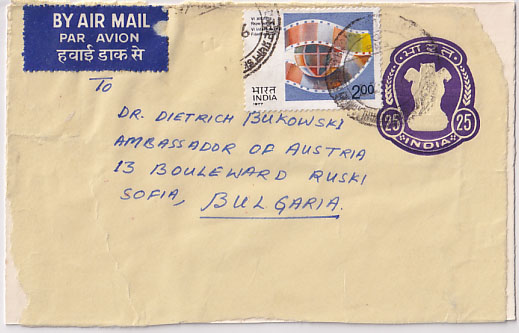 BY AIR MAIL
PAR AVION
हवाई डाक से
भारत
INDIA
2.00
भारत
25 25
INDIA
To
DR. DIETRICH BUKOWSKI
AMBASSADOR OF AUSTRIA
13 BOULEWARD RUSKI
SOFIA, BULGARIA.